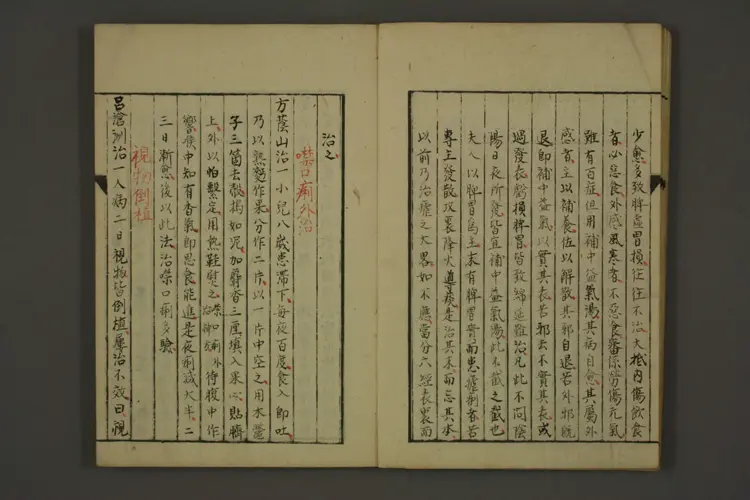 少愈多致脾虛胃損往往不治大抵內傷飲食
者必惡食外感風寒者不惡食審係勞傷元氣
雖有百症但用補中益氣湯其病自愈其屬外
感者主以補養佐以解散其邪自退若外邪既
退即補中益氣以實其表若邪去不實其表或
過發表虧損脾胃皆致綿延難治凡此不問陰
陽日夜所發皆宜補中益氣湯此不截之截也
夫人以脾胃為主未有脾胃實而患瘧痢者若
專主發散攻裏降火導痰是治其末而忘其本
以前乃治瘧之大畧如不應當分六經表裏而
治之
噤口痢外治
方蔭山治一小兒八歲患滯下每夜百度食入即吐
乃以熟麪作果分作二片以一片中空之用木鱉
子三箇去殼搗如泥加麝香三厘填入果心貼臍
上外以帕繫定用熱鞋熨之待腹中作
響喉中知有香氣即思食能進是夜痢減大半二
三日漸愈後以此法治噤口痢多驗
視物倒植
呂滄洲治一人病二日視物皆倒植屢治不效曰視